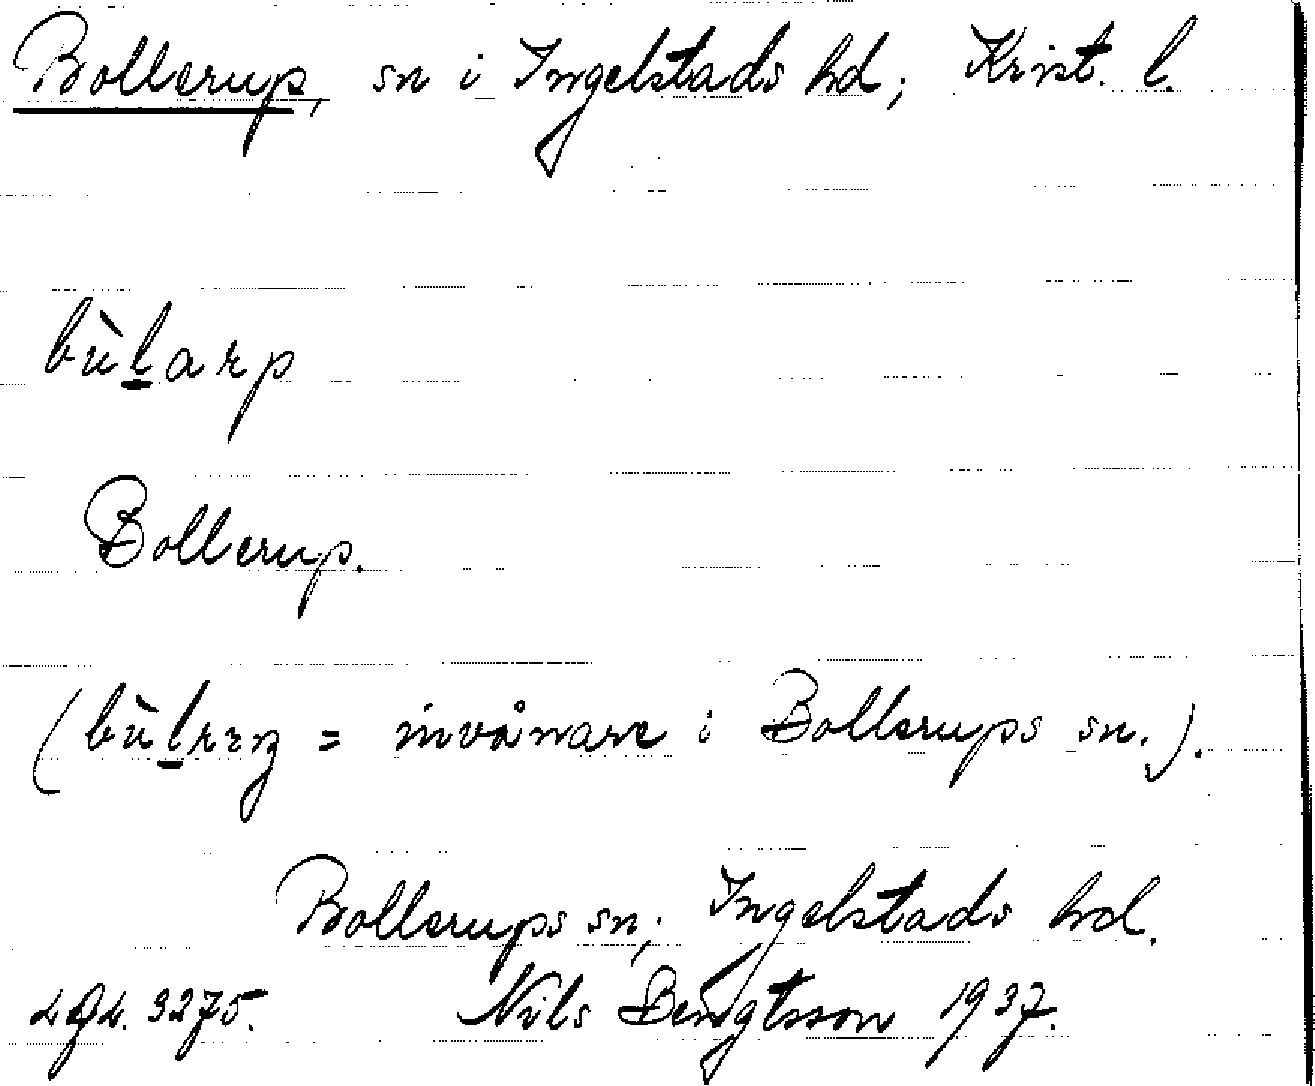 Bollerup, sn i Ingelstads hd; Krist. l.
bùl̲arp
Bollerup.
( = invånare i Bollerups sn.).
Bollerups sn; Ingelstads hd.
3275. Nils Bengtsson 1937.